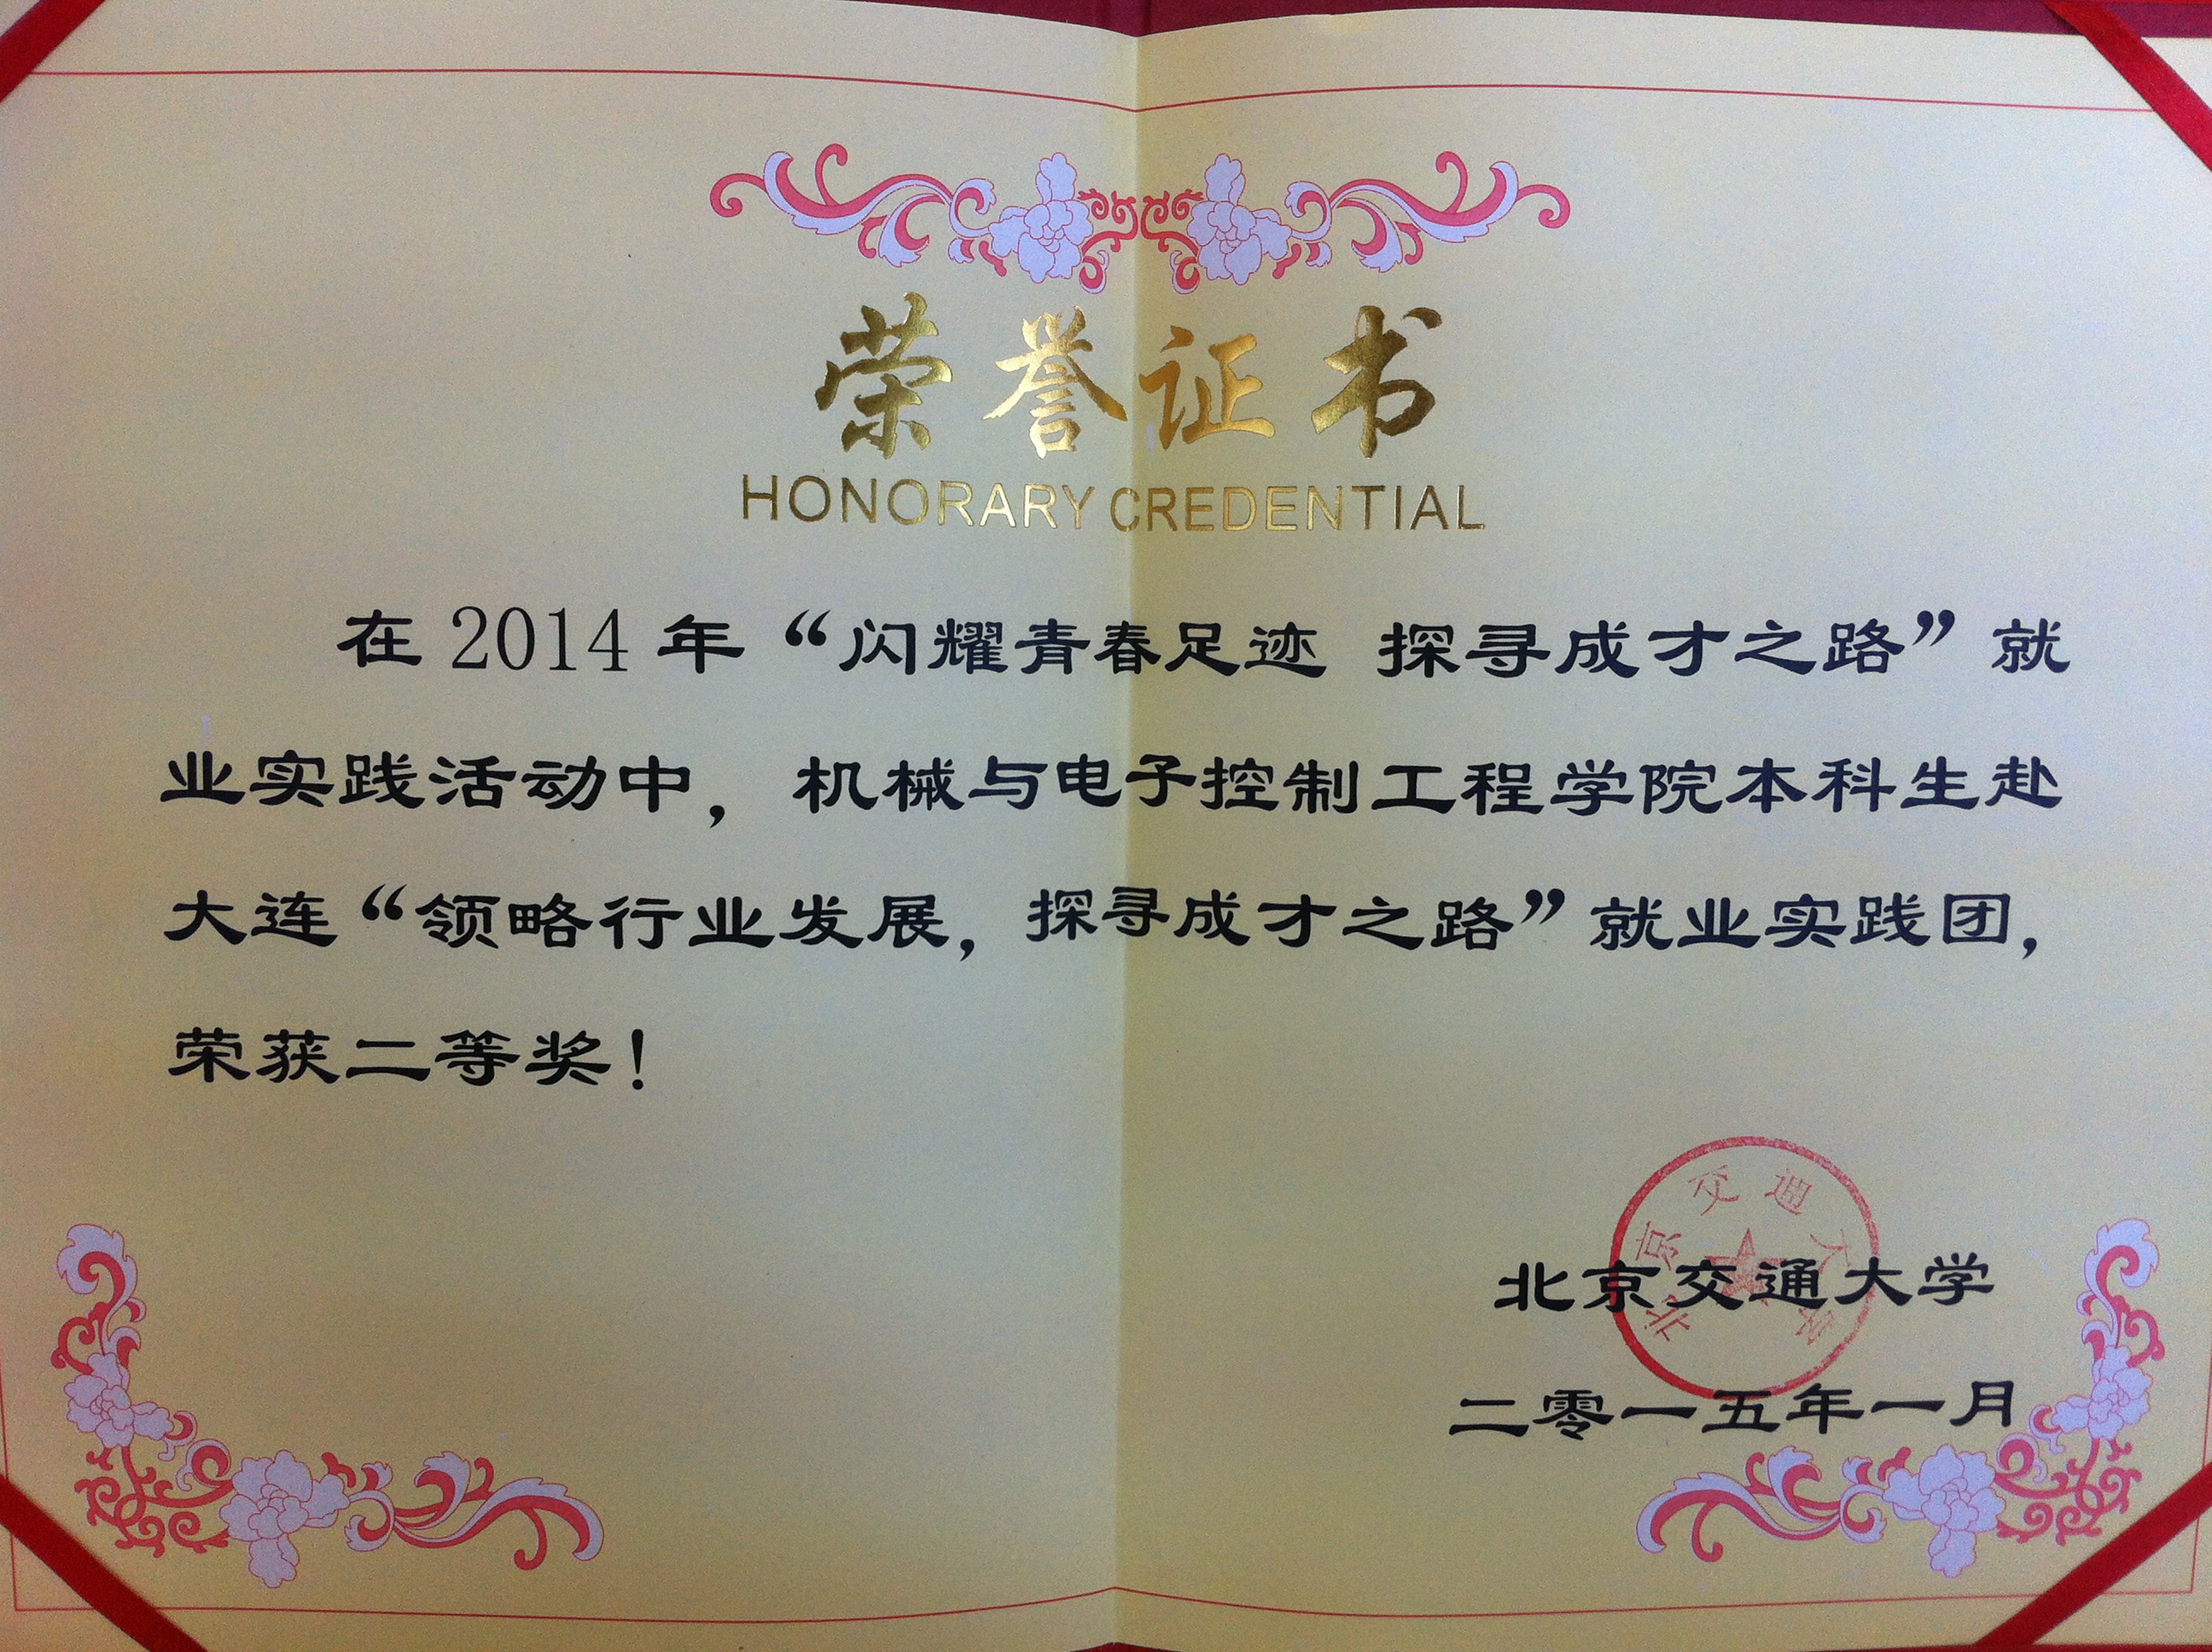 荣誉证书
HONORARY CREDENTIAL
在 2014 年“闪耀青春足迹 探寻成才之路”就
业实践活动中，机械与电子控制工程学院本科生赴
大连“领略行业发展，探寻成才之路”就业实践团，
荣获二等奖！
北京交通大学
北京交通大学
二零一五年一月